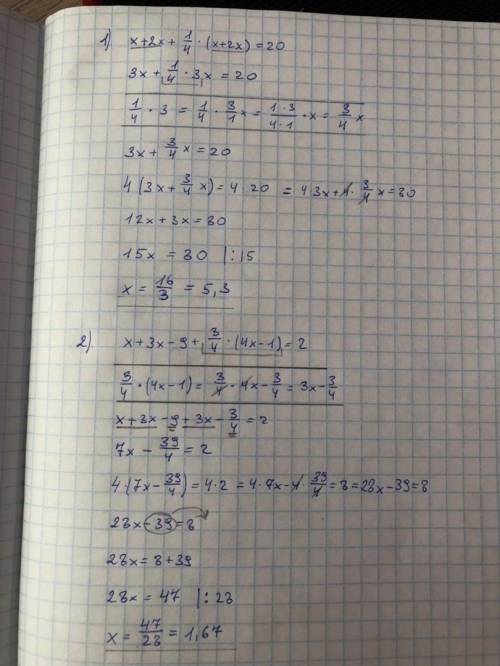 1) x+2x+1/4·(x+2x)=20
3x+1/4·3x=20
1/4·3=1/4·3/1x=1·3/4·1·x=3/4x
3x+3/4x=20
4(3x+3/4x)=4 20 =4·3x+4·3/4x=80
12x+3x=80
15x=80 |:15
x=16/3=5,3
2) x+3x-9+3/4·(4x-1)=2
3/4·(4x-1)=3/4·4x-3/4=3x-3/4
x+3x-9+3x-3/4=2
7x-39/4=2
4(7x-39/4)=4·2=4·7x-4·39/4=8=28x-39=8
28x-39=8
28x=8+39
28x=47 |:28
x=47/28=1,67